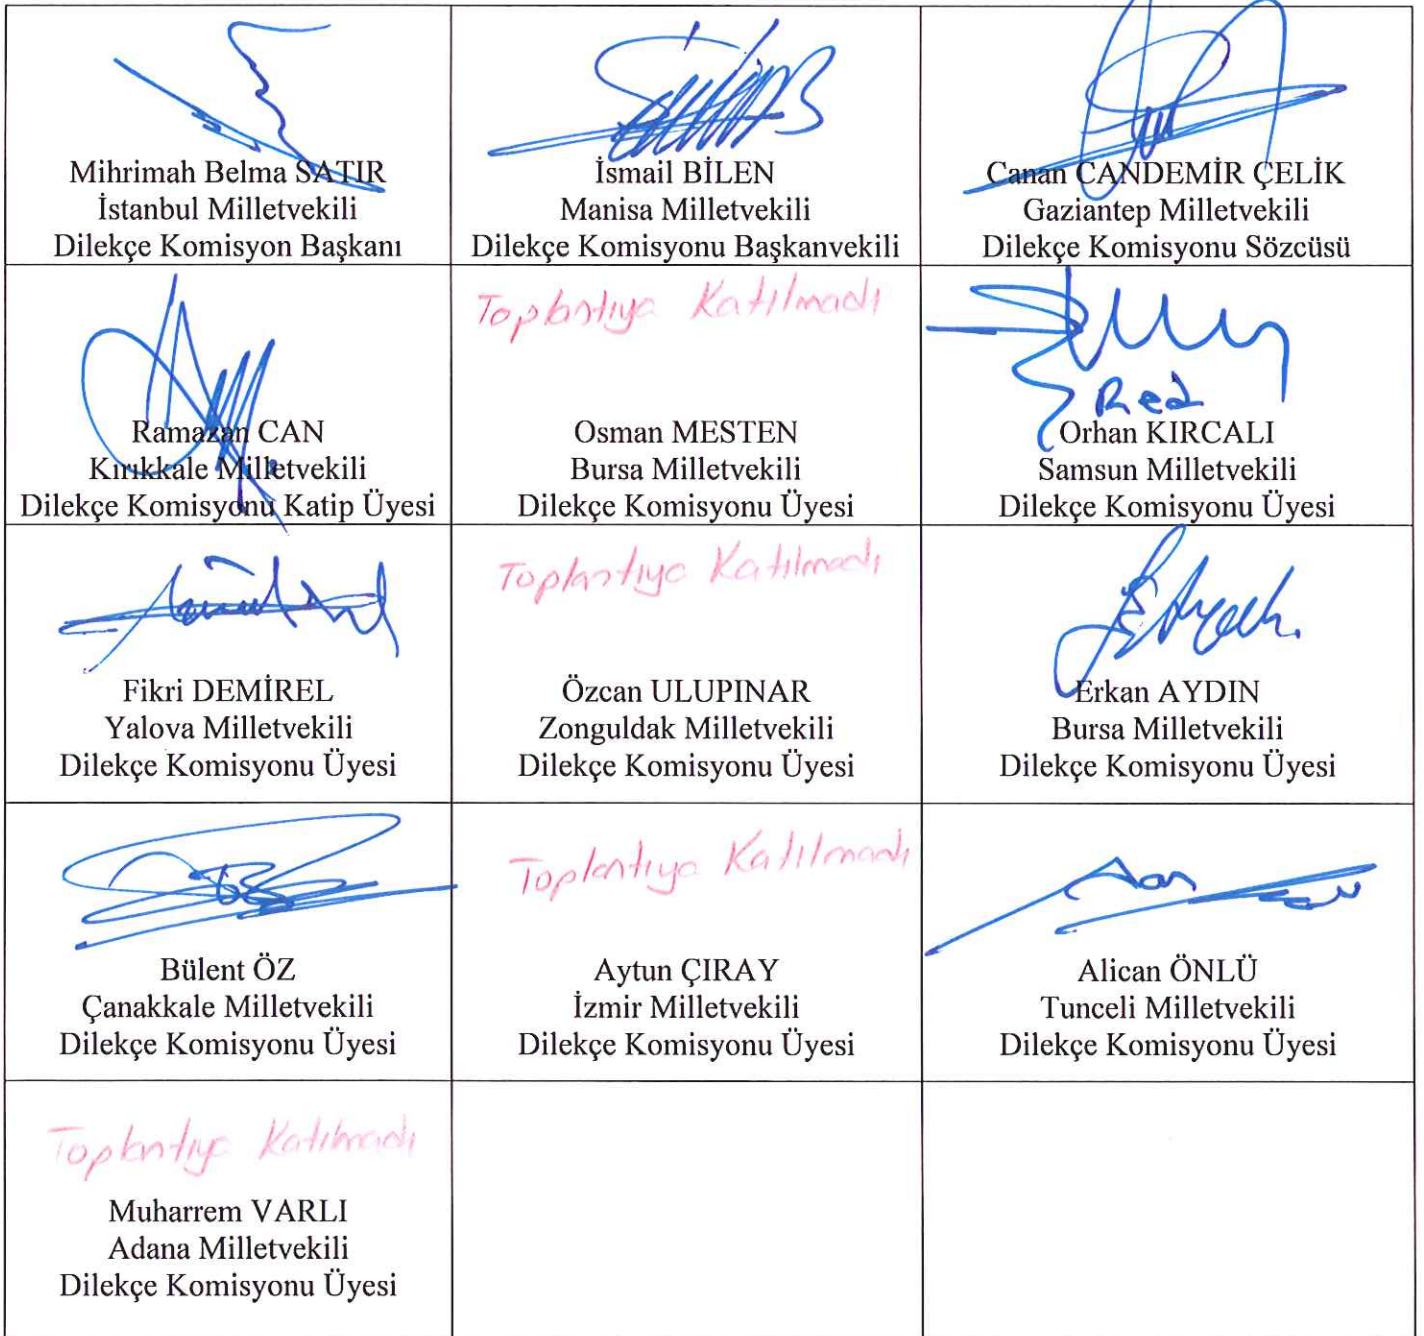 Mihrimah Belma SATIR
İstanbul Milletvekili
Dilekçe Komisyon Başkanı
İsmail BİLEN
Manisa Milletvekili
Dilekçe Komisyonu Başkanvekili
Canan CANDEMİR ÇELİK
Gaziantep Milletvekili
Dilekçe Komisyonu Sözcüsü
Ramazan CAN
Kırıkkale Milletvekili
Dilekçe Komisyonu Katip Üyesi
Toplantıya Katılmadı
Osman MESTEN
Bursa Milletvekili
Dilekçe Komisyonu Üyesi
Red
Orhan KIRCALI
Samsun Milletvekili
Dilekçe Komisyonu Üyesi
Fikri DEMİREL
Yalova Milletvekili
Dilekçe Komisyonu Üyesi
Toplantıya Katılmadı
Özcan ULUPINAR
Zonguldak Milletvekili
Dilekçe Komisyonu Üyesi
Erkan AYDIN
Bursa Milletvekili
Dilekçe Komisyonu Üyesi
Bülent ÖZ
Çanakkale Milletvekili
Dilekçe Komisyonu Üyesi
Toplantıya Katılmadı
Aytun ÇIRAY
İzmir Milletvekili
Dilekçe Komisyonu Üyesi
Alican ÖNLÜ
Tunceli Milletvekili
Dilekçe Komisyonu Üyesi
Toplantıya Katılmadı
Muharrem VARLI
Adana Milletvekili
Dilekçe Komisyonu Üyesi